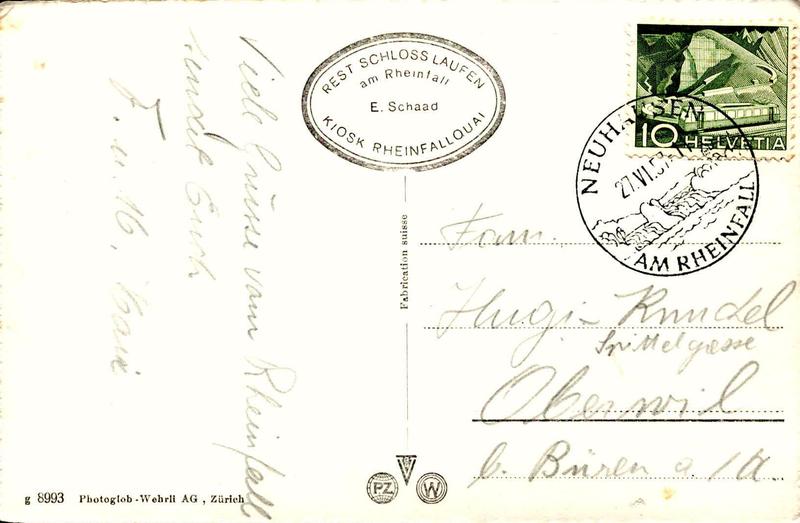 Viele Grüsse vom Rheinfall
sendet Euch
F. u. M.
REST SCHLOSS LAUFEN
am Rheinfall
E. Schaad
KIOSK RHEINFALLQUAI
10 HELVETIA
NEUHAUSEN
27.VI.57
AM RHEINFALL
Fabrication suisse
Fam.
Hugi-Kundel
Spittelgasse
Oberwil
b. Büren a/A
PZ
W
g 8993 Photoglob-Wehrli AG, Zürich